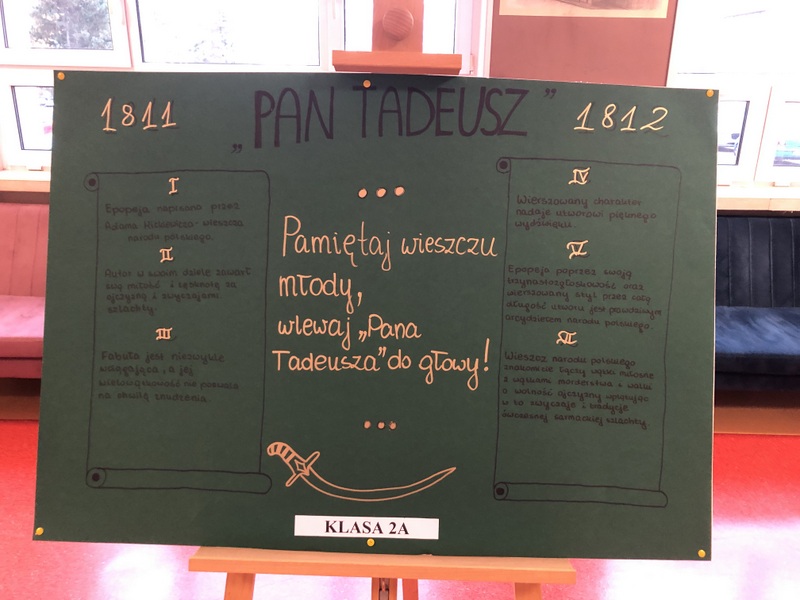 1811
„PAN TADEUSZ”
1812
I
Epopeja napisana przez
Adama Mickiewicza - wieszcza
narodu polskiego.
II
Autor w swoim dziele zawarł
swą miłość i tęsknotę za
ojczyzną i zwyczajami
szlachty.
III
Fabuła jest niezwykle
wciągająca i a jej
wielowątkowość nie pozwala
na chwilę znudzenia.
...
Pamiętaj wieszczu
młody,
wlewaj „Pana
Tadeusza” do głowy!
...
IV
Wierszowany charakter
nadaje utworowi pięknego
wydźwięku.
V
Epopeja poprzez swoją
trzynastozgłoskowość oraz
wierszowany styl przez całą
długość utworu jest prawdziwym
arcydziełem narodu polskiego.
VI
Wieszcz narodu polskiego
znakomicie łączy wątki miłosne
z wątkami morderstwa i walki
o wolność ojczyzny wplatając
w to zwyczaje i tradycje
ówczesnej sarmackiej szlachty.
KLASA 2A